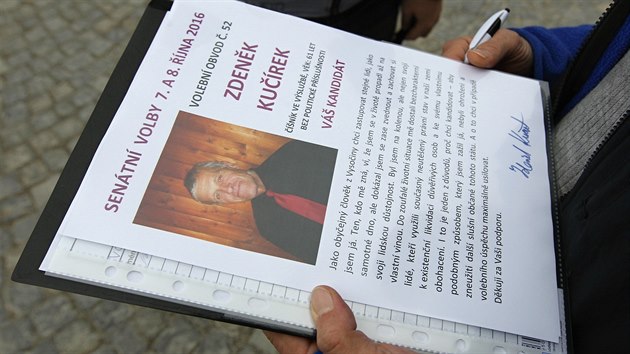 SENÁTNÍ VOLBY 7. A 8. ŘÍJNA 2016
VOLEBNÍ OBVOD Č. 52
ZDENĚK
KUČÍREK
ČÍŠNÍK VE VÝSLUŽBĚ, VĚK: 61 LET
BEZ POLITICKÉ PŘÍSLUŠNOSTI
VÁŠ KANDIDÁT
Jako obyčejný člověk z Vysočiny chci zastupovat stejné lidi, jako
jsem já. Ten, kdo mě zná, ví, že jsem se v životě propadl až na
samotné dno, ale dokázal jsem se zase zvednout a zachovat si
svoji lidskou důstojnost. Byl jsem na kolenou, ale nejen svojí
vlastní vinou. Do zoufalé životní situace mě dostali bezcharakterní
lidé, kteří využili současný neutěšený právní stav v naší zemi
k existenční likvidaci důvěřivých osob a ke svému vlastnímu
obohacení. I to je jeden z důvodů, proč chci kandidovat – aby
podobným způsobem, který jsem zažil já, nebyli ohroženi a
zneužiti další slušní občané tohoto státu. A o to chci v případě
volebního úspěchu maximálně usilovat.
Děkuji za Vaši podporu.